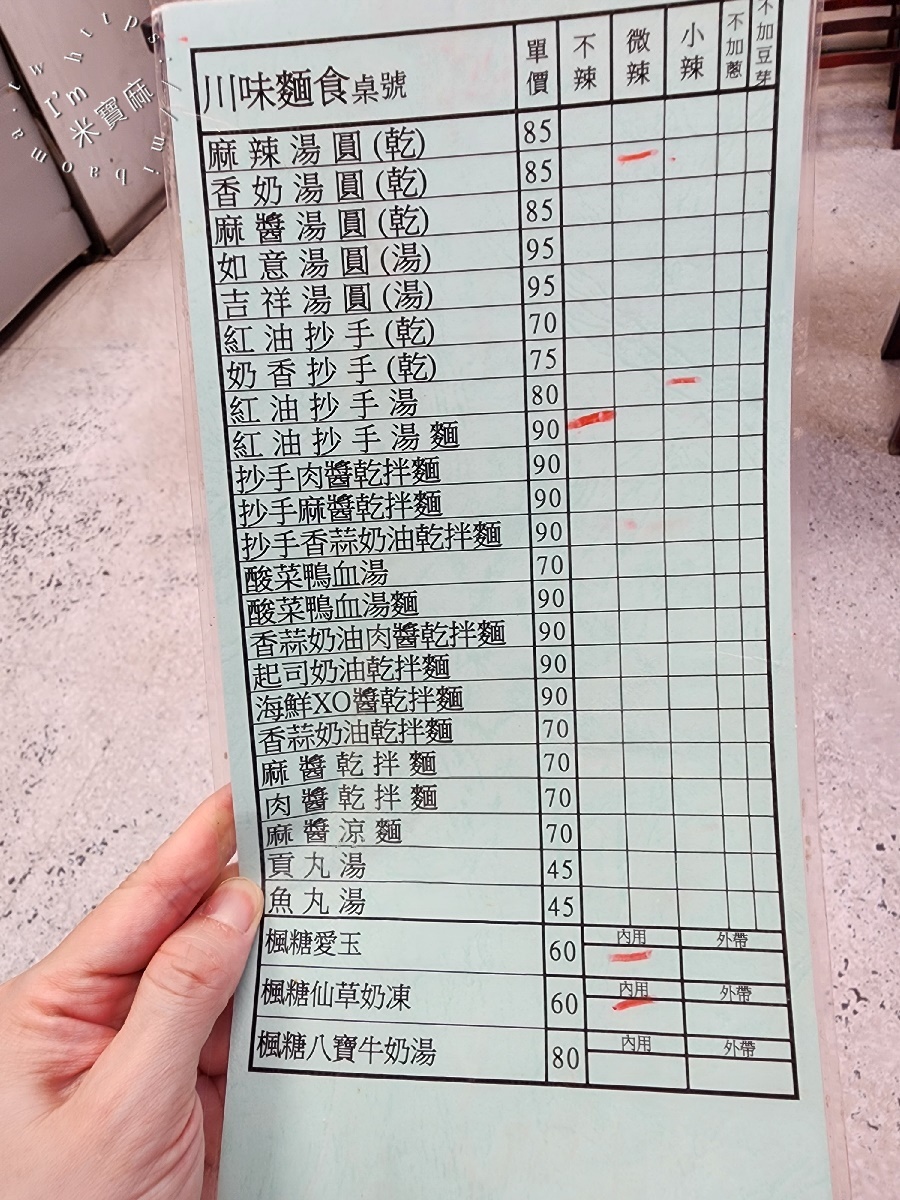 I'm
米寶麻
川味麵食桌號 單價 不辣 微辣 小辣 不加蔥 不加豆芽
麻辣湯圓(乾) 85
香奶湯圓(乾) 85
麻醬湯圓(乾) 85
如意湯圓(湯) 95
吉祥湯圓(湯) 95
紅油抄手(乾) 70
奶香抄手(乾) 75
紅油抄手湯 80
紅油抄手湯麵 90
抄手肉醬乾拌麵 90
抄手麻醬乾拌麵 90
抄手香蒜奶油乾拌麵 90
酸菜鴨血湯 70
酸菜鴨血湯麵 90
香蒜奶油肉醬乾拌麵 90
起司奶油乾拌麵 90
海鮮XO醬乾拌麵 90
香蒜奶油乾拌麵 70
麻醬乾拌麵 70
肉醬乾拌麵 70
麻醬涼麵 70
貢丸湯 45
魚丸湯 45
楓糖愛玉 60 內用 外帶
楓糖仙草奶凍 60 內用 外帶
楓糖八寶牛奶湯 80 內用 外帶